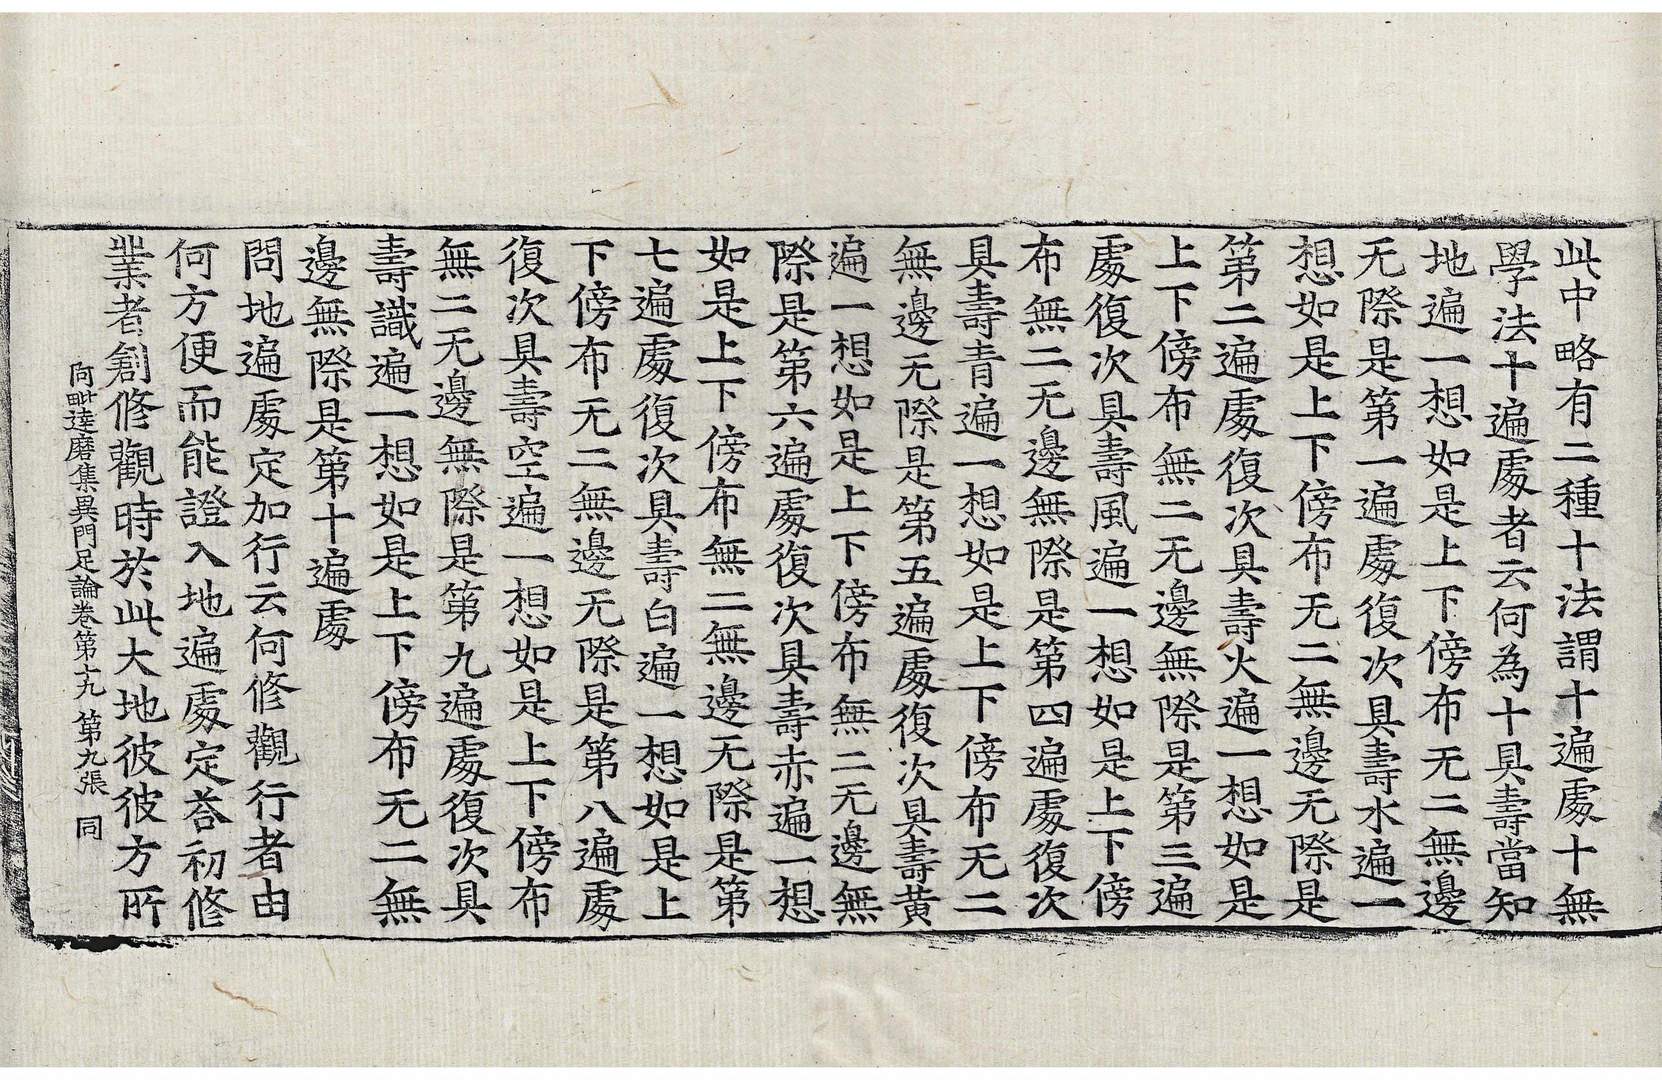 此中略有二種十法謂十遍處十無
學法十遍處者云何為十具壽當知
地遍一想如是上下傍布无二無邊
无際是第一遍處復次具壽水遍一
想如是上下傍布无二無邊无際是
第二遍處復次具壽火遍一想如是
上下傍布無二无邊無際是第三遍
處復次具壽風遍一想如是上下傍
布無二无邊無際是第四遍處復次
具壽青遍一想如是上下傍布无二
無邊无際是第五遍處復次具壽黄
遍一想如是上下傍布無二无邊無
際是第六遍處復次具壽赤遍一想
如是上下傍布無二無邊无際是第
七遍處復次具壽白遍一想如是上
下傍布无二無邊无際是第八遍處
復次具壽空遍一想如是上下傍布
無二无邊無際是第九遍處復次具
壽識遍一想如是上下傍布无二無
邊無際是第十遍處
問地遍處定加行云何修觀行者由
何方便而能證入地遍處定荅初修
業者創修觀時於此大地彼彼方所
阿毗達磨集異門足論卷第十九 第九張 同